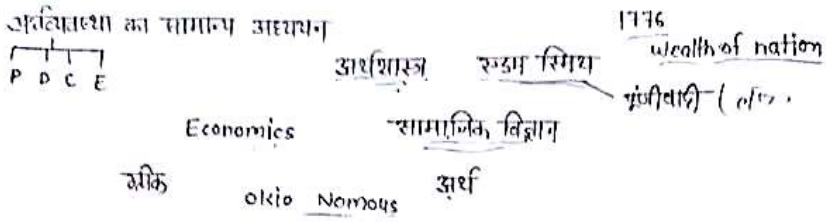 अर्थव्यवस्था का सामान्य अध्ययन
1776
Wealth of nation
P D C E
अर्थशास्त्र एडम स्मिथ
पूंजीवादी (
Economics सामाजिक विज्ञान
ग्रीक
Okio Nomous
अर्थ